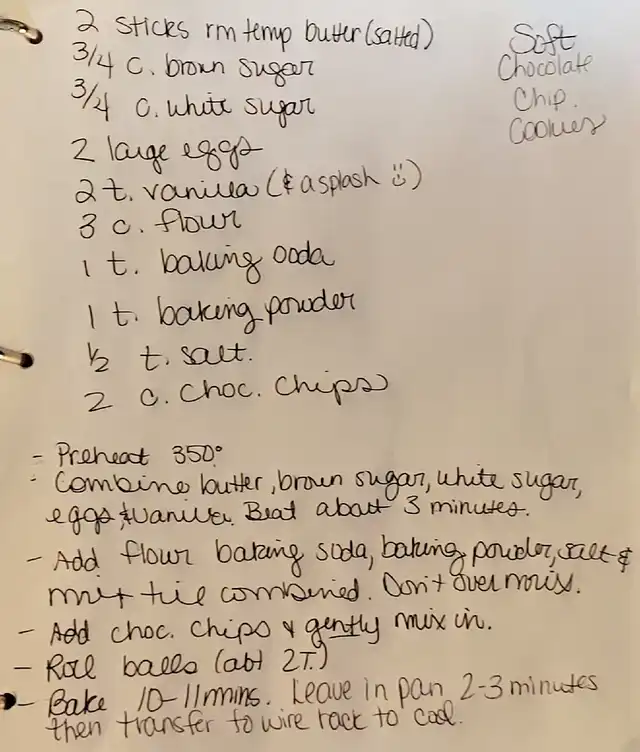 2 sticks rm temp butter (salted)
3/4 c. brown sugar
3/4 c. white sugar
2 large eggs
2 t. vanilla (& a splash ☺)
3 c. flour
1 t. baking soda
1 t. baking powder
1/2 t. salt.
2 c. choc. chips
Soft
Chocolate
Chip.
Cookies
- Preheat 350°
- Combine butter, brown sugar, white sugar,
eggs & vanilla. Beat about 3 minutes.
- Add flour baking soda, baking powder, salt &
mix til combined. Don't over mix.
- Add choc. chips & gently mix in.
- Roll balls (abt 2T.)
- Bake 10-11 mins. Leave in pan 2-3 minutes
then transfer to wire rack to cool.